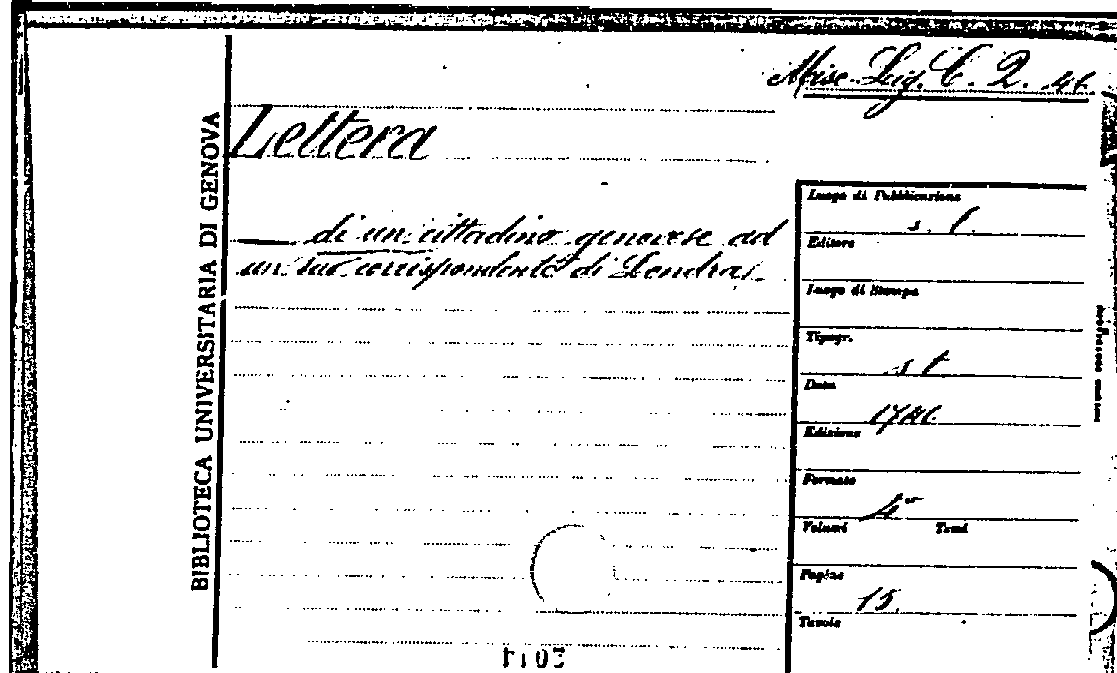 Misc. Lig. C. 2. 46.
BIBLIOTECA UNIVERSITARIA DI GENOVA
Lettera
di un cittadino genovese ad
un suo corrispondente di Londra.
Luogo di Pubblicazione
s. l.
Editore
Luogo di Stampa
Tipogr.
s t
Data
1746
Edizione
Formato
4°
Volumi Tomi
Pagine
15.
Tavole